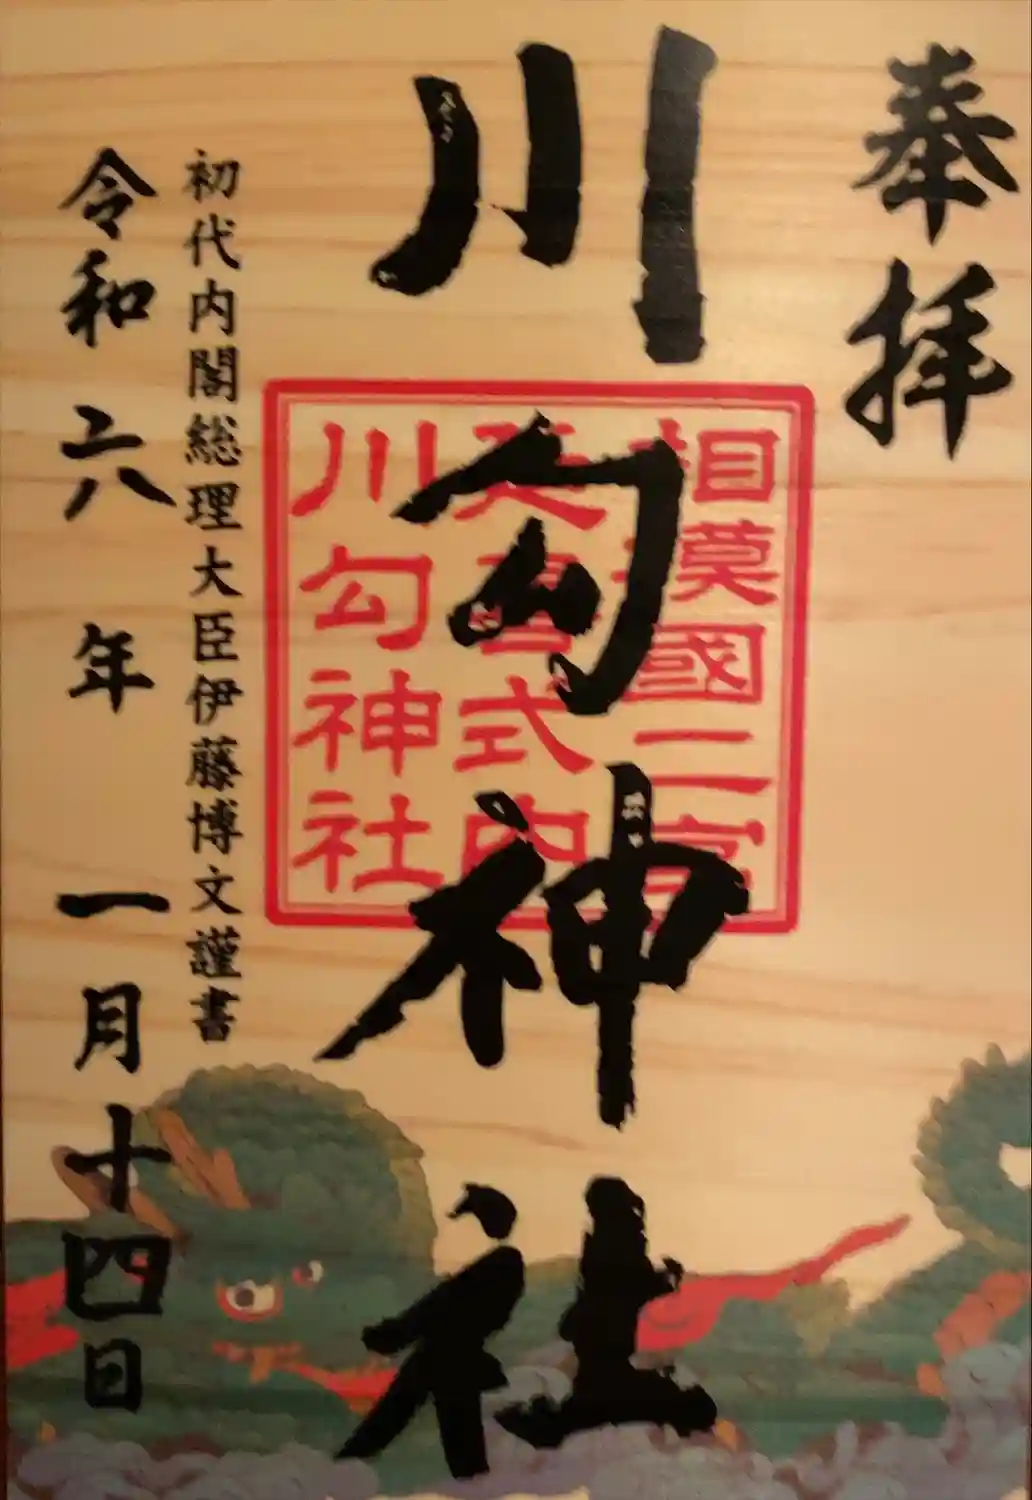 奉拝
川勾神社
相模國二宮
延喜式内
川勾神社
初代内閣総理大臣伊藤博文謹書
令和六年一月十四日